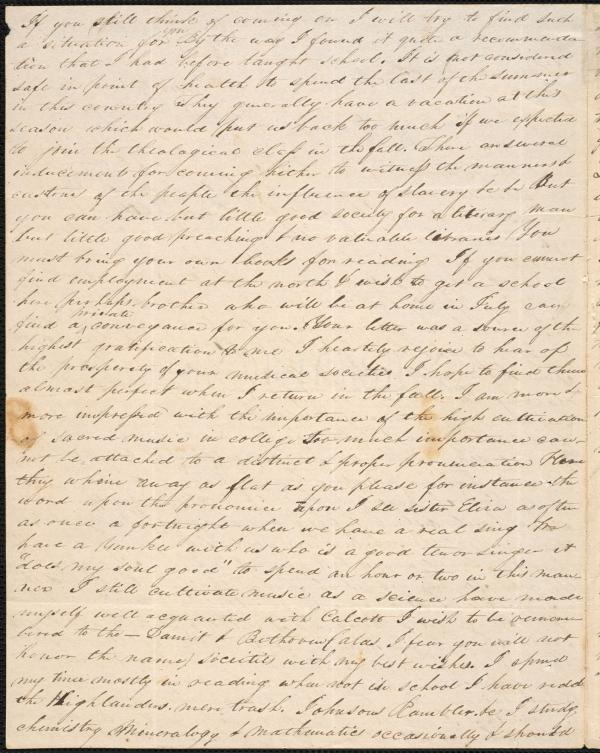 If you still think of coming on I will try to find such
a situation for you By the way I found it quite a recommenda
tion that I had before taught school. It is not considered
safe in point of health to spend the last of the summer
in this country They generally have a vacation at this
season which would put us back too much if we expected
to join the theological class in the fall. There are several
inducements for coming hither to witness the manners &
customs of the people the influence of slavery &c &c But
you can have but little good society for a literary man
but little good preaching & no valuable libraries You
must bring your own books for reading If you cannot
find employment at the north & wish to get a school
here perhaps brother who will be at home in July can
find a private conveyance for you. Your letter was a source of the
highest gratification to me I heartily rejoice to hear of
the prosperity of your musical societies I hope to find them
almost perfect when I return in the fall. I am more &
more impressed with the importance of the high cultivation
of sacred music in college Too much importance can
not be attached to a distinct & proper pronunciation Here
they whine away as flat as you please for instance the
word upon they pronounce upon I see sister Eliza as often
as once a fortnight when we have a real sing We
have a Yankee with us who is a good tenor singer it
"does my soul good" to spend an hour or two in this man
ner I still cultivate music as a science have made
myself well acquainted with Calcott I wish to be remem
bered to the — & Bethoven (alas I fear you will not
honor the name) societies with my best wishes. I spend
my time mostly in reading when not in school I have redd
the Highlanders mere trash. Johnsons Rambler &c I study
chemistry Mineralogy & Mathematics occasionally & should